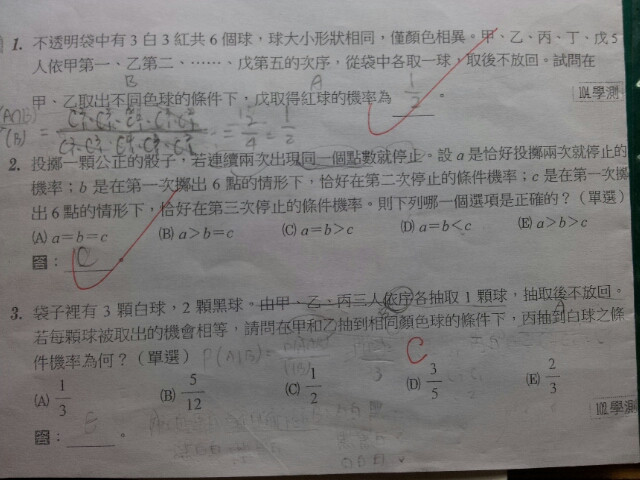 1. 不透明袋中有 3 白 3 紅共 6 個球，球大小形狀相同，僅顏色相異。甲、乙、丙、丁、戊 5
人依甲第一、乙第二、……、戊第五的次序，從袋中各取一球，取後不放回。試問在
B A
甲、乙取出不同色球的條件下，戊取得紅球的機率為 1/2 。
104.學測
= 1/2
2. 投擲一顆公正的骰子，若連續兩次出現同一個點數就停止。設 a 是恰好投擲兩次就停止的
機率；b 是在第一次擲出 6 點的情形下，恰好在第二次停止的條件機率；c 是在第一次擲
出 6 點的情形下，恰好在第三次停止的條件機率。則下列哪一個選項是正確的？(單選)
(A) a=b=c (B) a>b=c (C) a=b>c (D) a=b<c (E) a>b>c
答： C 。
3. 袋子裡有 3 顆白球，2 顆黑球。由甲、乙、丙三人依序各抽取 1 顆球，抽取後不放回。
若每顆球被取出的機會相等，請問在甲和乙抽到相同顏色球的條件下，丙抽到白球之條
件機率為何？(單選) P(A|B)=
C
(A) 1/3 (B) 5/12 (C) 1/2 (D) 3/5 (E) 2/3
102.學測
答： E 。